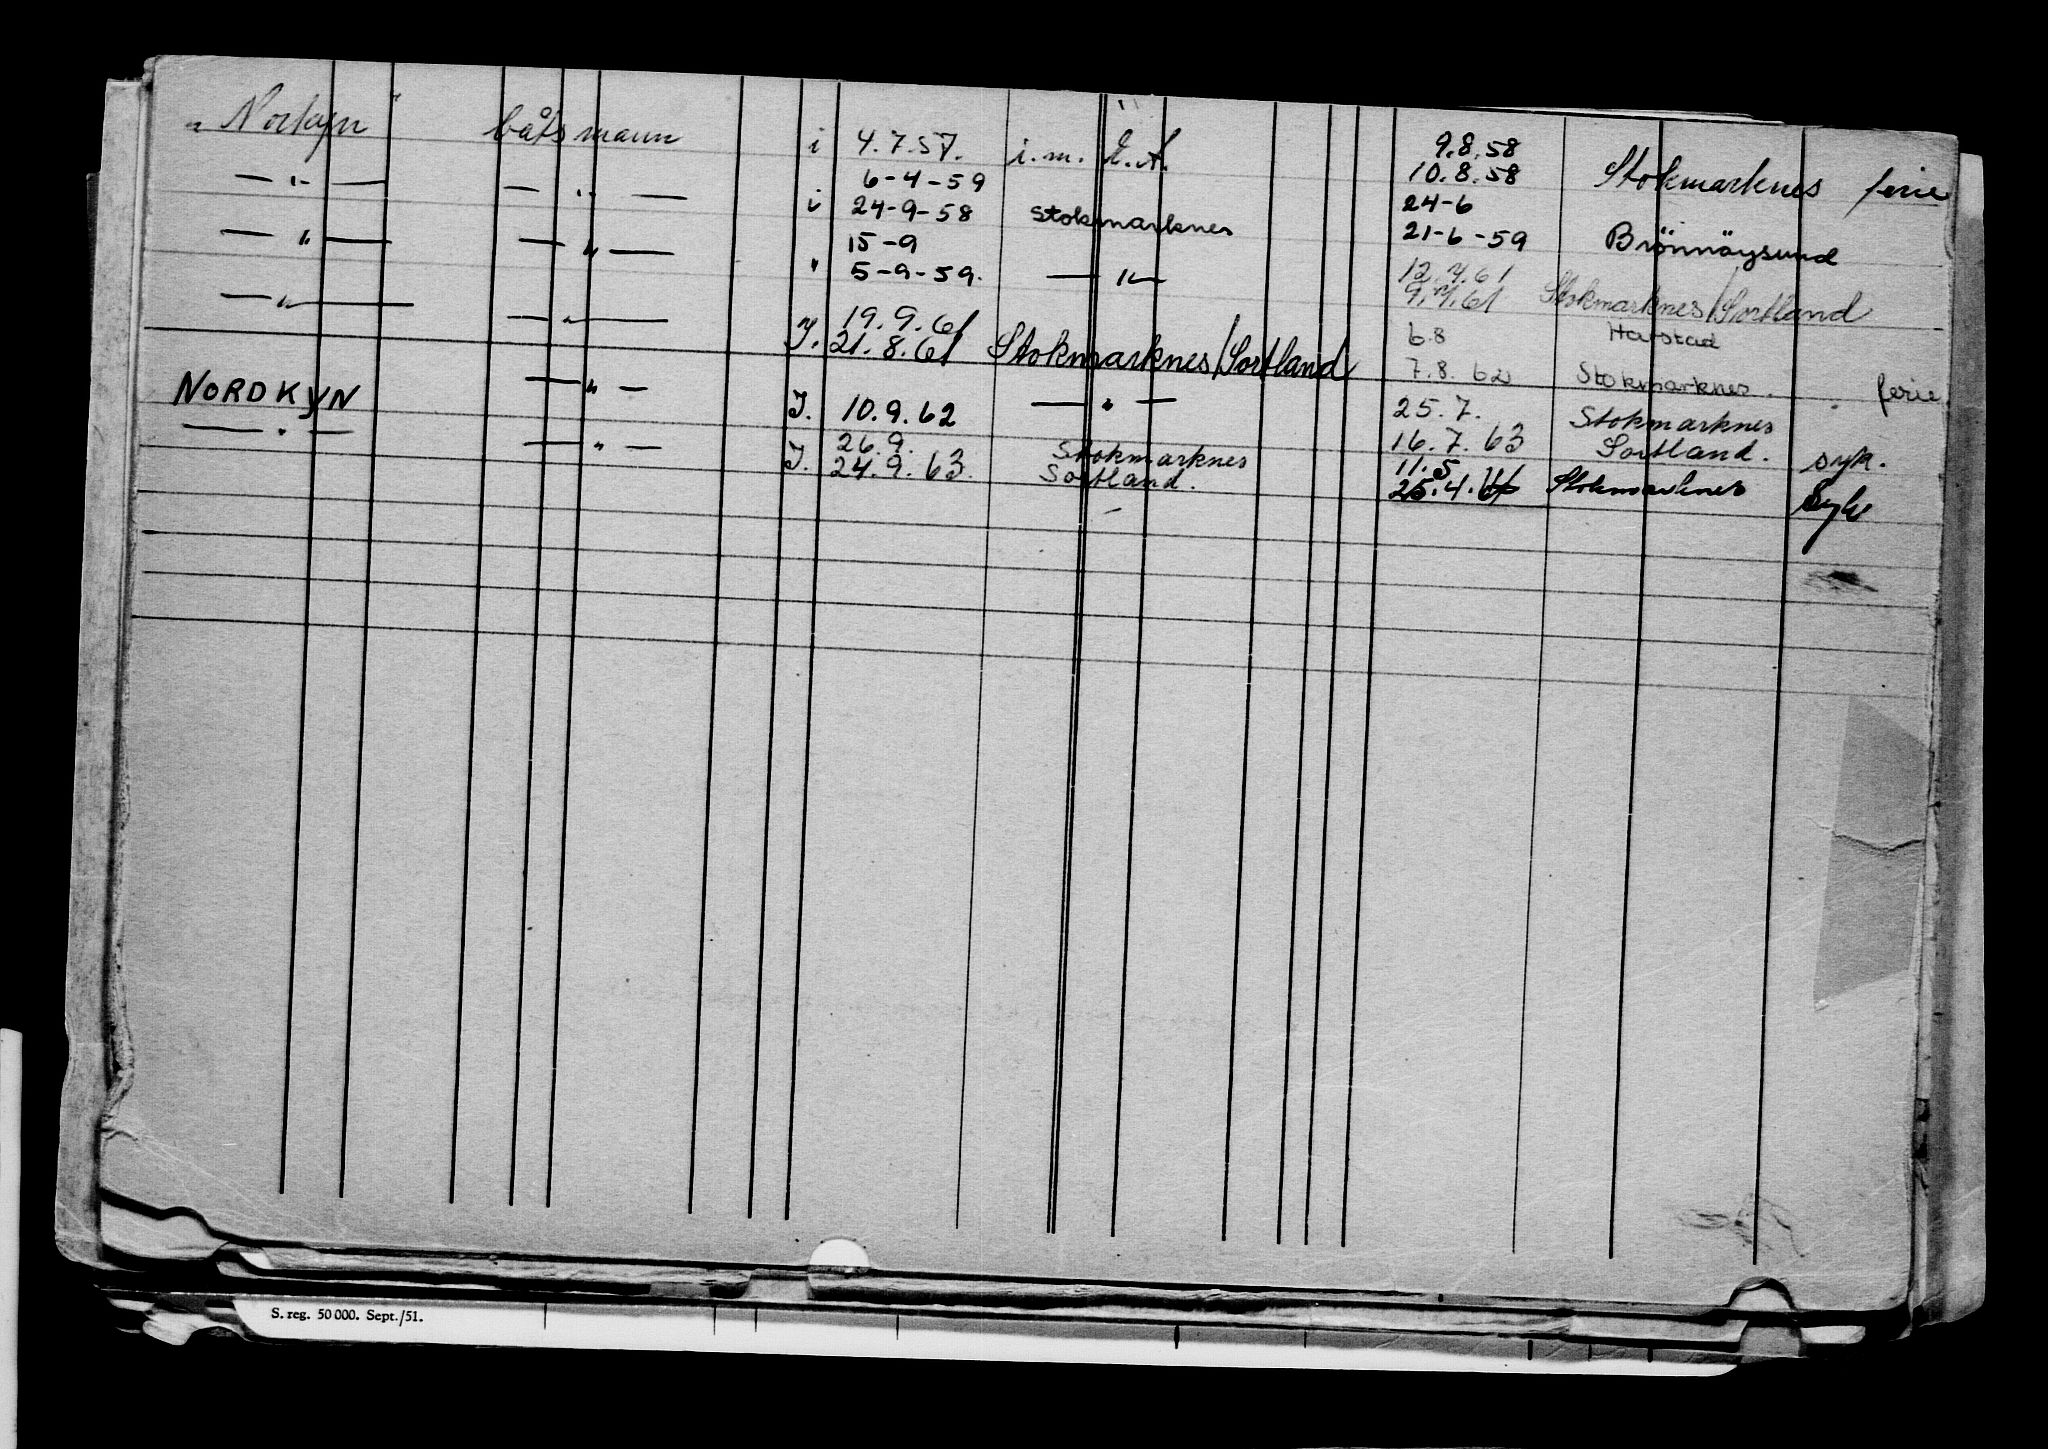 „Norkyn" båtsmann i 4.7.57. i.m. E.A. 9.8.58
10.8.58 Stokmarknes ferie
—"— —"— 6-4-59
i 24-9-58 Stokmarknes 24-6
21-6-59 Brönnöysund
—"— —"— 15-9
" 5-9-59. —"— 12.7.61
9.7.61 Stokmarknes/Sortland
—"— —"— 19.9.61
I. 21.8.61 Stokmarknes/Sortland 6.8 Harstad
7.8.62 Stokmarknes. ferie
NORDKYN —"— I. 10.9.62 —"— 25.7. Stokmarknes
16.7.63 Sortland. syk.
—"— —"— 26.9. Stokmarknes 11.5
I. 24.9.63. Sortland. 25.4.64 Stokmarknes Syk
S. reg. 50 000. Sept./51.